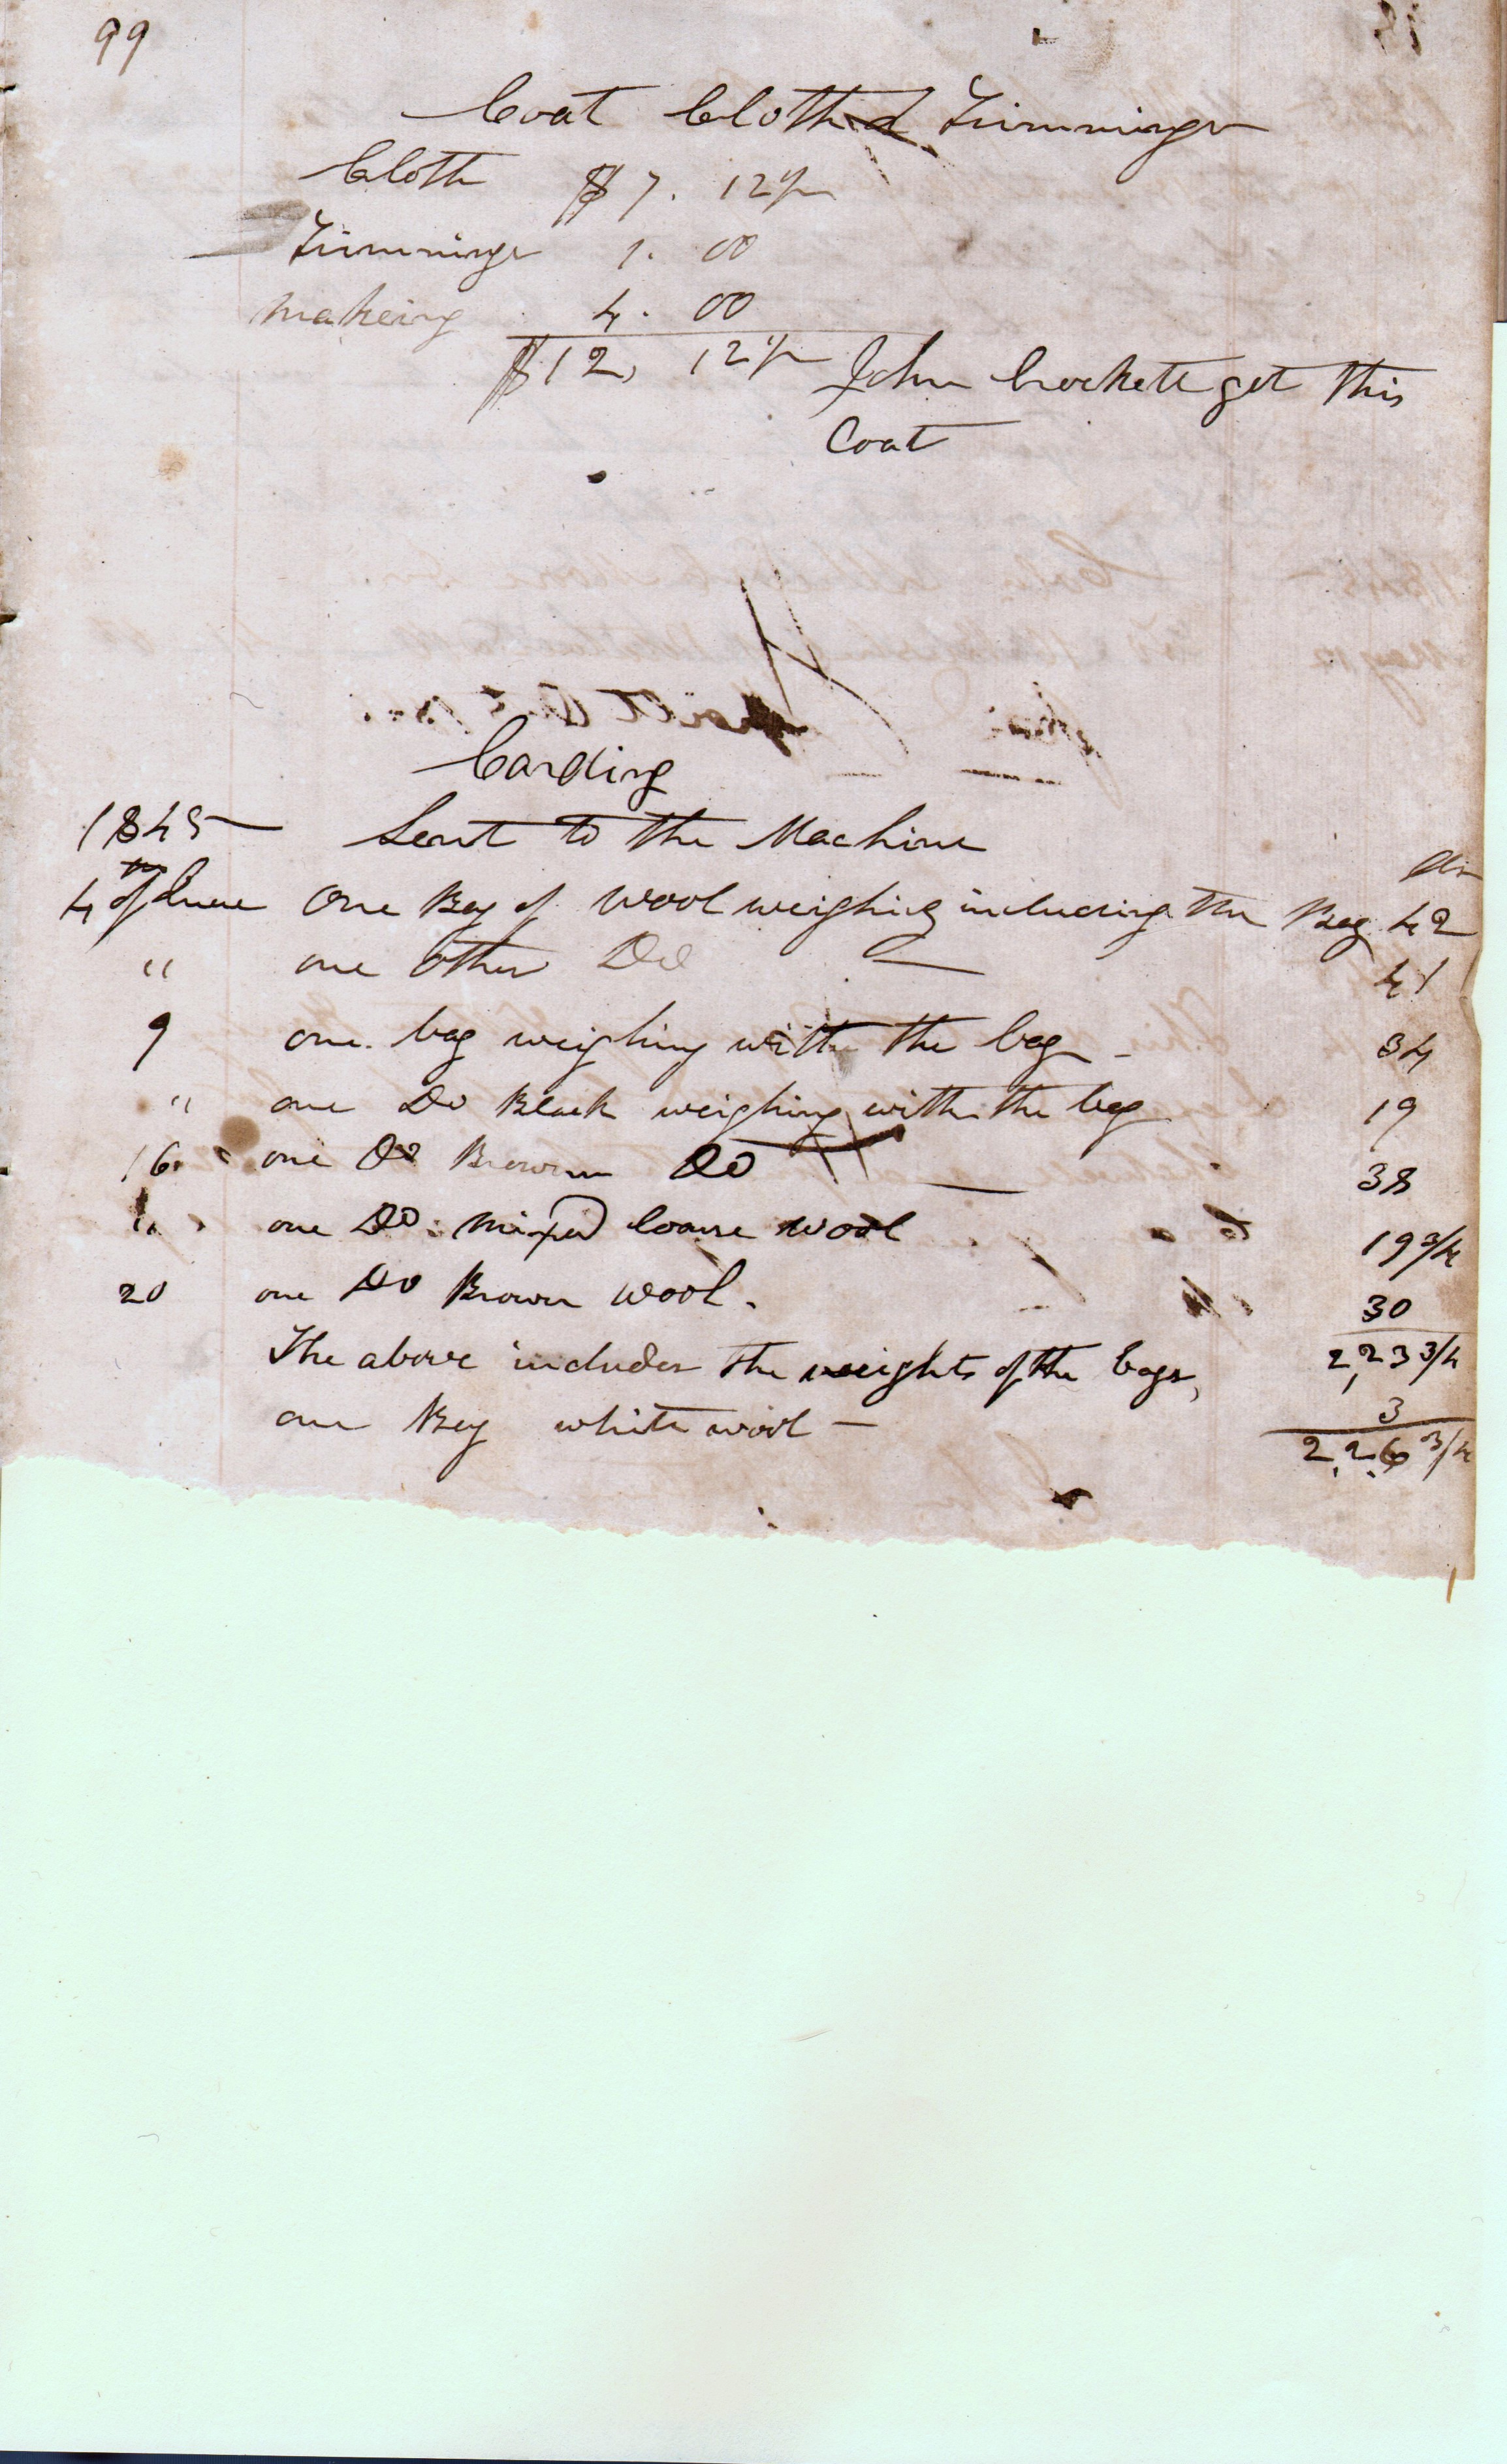 99
Coat Cloth & Trimmings
Cloth $7. 12½
Trimmings 1. 00
makeing 4. 00
$12, 12½ John Crockett got this
Coat
Carding
1845 Sent to the Machine
4 of June One Bag of Wool weighing including the Bag 42
" one other Do 41
9 one bag weighing with the bag 34
" one Do Black weighing with the bag 19
16 one Do Brown Do 38
" one Do mixed Coarse wool 19 3/4
20 one Do Brown Wool. 30
The above includes the weights of the bags, 223 3/4
one Bag white wool — 3
226 3/4